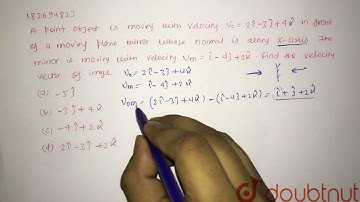 182694823
A point object is moving with velocity V₀ = 2î-3ĵ+4k̂ in front
of a moving plane mirror whose normal is along X-axis. The
mirror is moving with velocity Vm = î-4ĵ+2k̂. find the velocity
vector of image. V₀ = 2î-3ĵ+4k̂
(a) -5ĵ Vm = î-4ĵ+2k̂
(b) -3ĵ+4k̂ V₀m = (2î-3ĵ+4k̂) - (î-4ĵ+2k̂) = î+ĵ+2k̂
(c) -4ĵ+2k̂
(d) 2î-3ĵ+2k̂
doubtnut